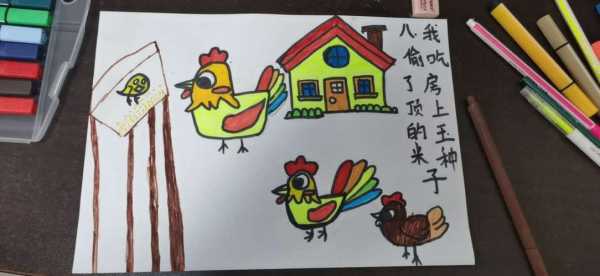 我吃房上玉种
儿偷了顶的米子